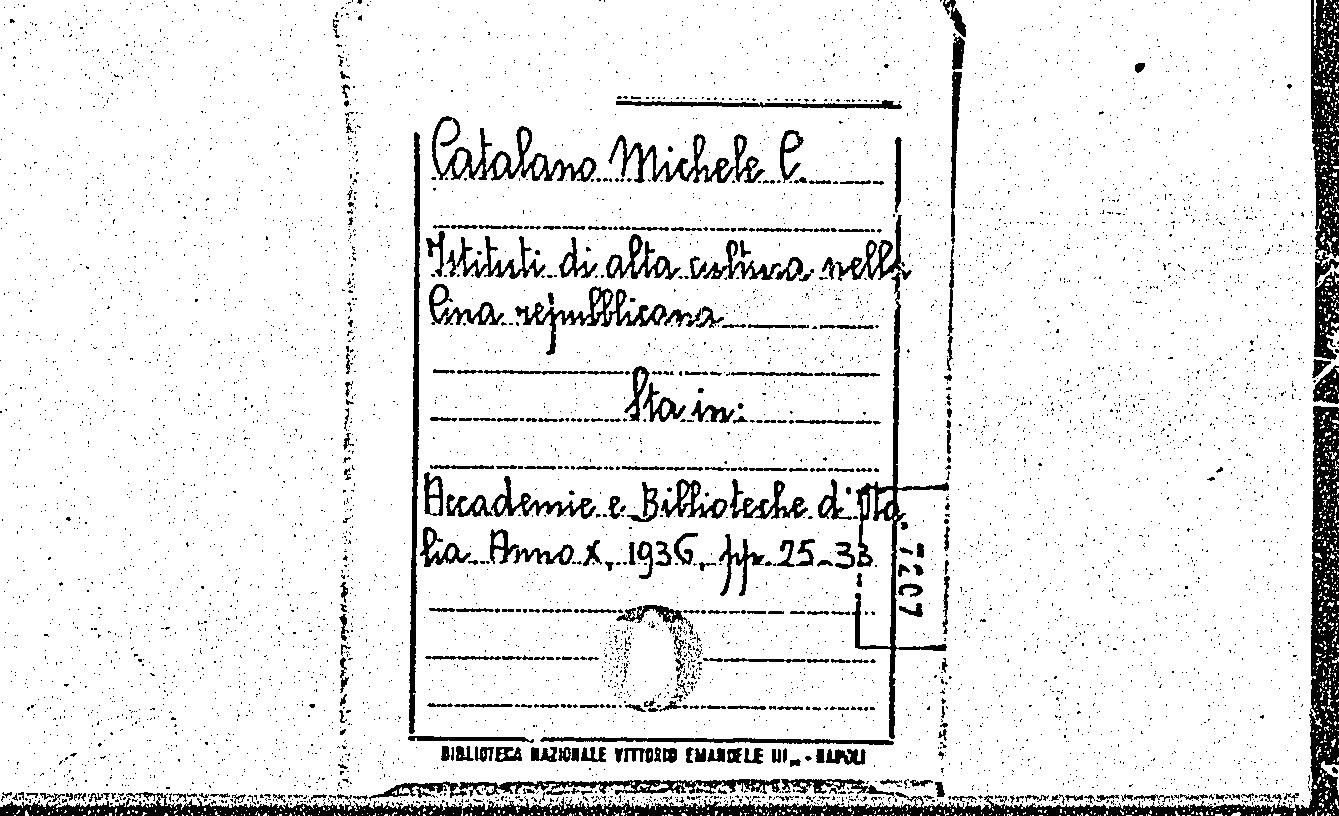 Catalano Michele C.
Istituti di alta cultura nella
Cina repubblicana
Sta in:
Accademie e Biblioteche d'Ita
lia. Anno X, 1936, pp. 25-33
7207
BIBLIOTECA NAZIONALE VITTORIO EMANUELE III - NAPOLI